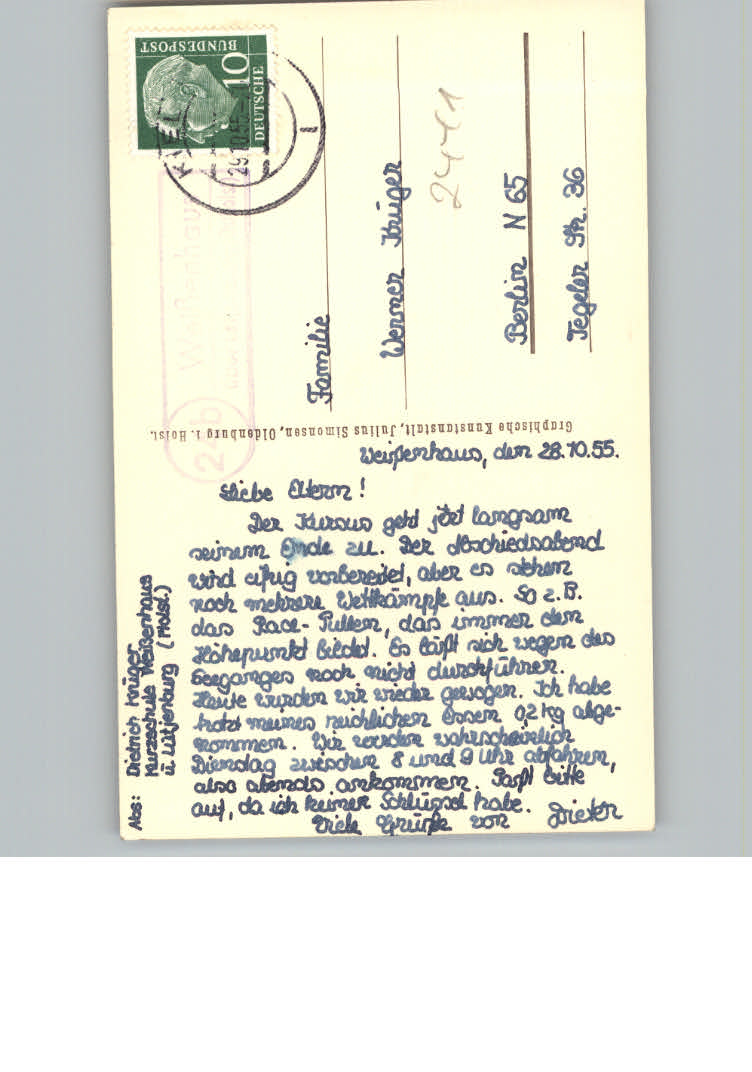 Weißenhaus, den 28.10.55.
Liebe Eltern!
Der Kursus geht jetzt langsam
seinem Ende zu. Der Abschiedsabend
wird eifrig vorbereitet, aber es stehen
noch mehrere Wettkämpfe aus. So z.B.
das Race-Pullen, das immer den
Höhepunkt bildet. Es läßt sich wegen des
Seeganges noch nicht durchführen.
Heute wurden wir wieder gewogen. Ich habe
trotz meines reichlichen Essen 0,2 kg abge-
nommen. Wir werden wahrscheinlich
Dienstag zwischen 8 und 9 Uhr abfahren,
also abends ankommen. Paßt bitte
auf, da ich keinen Schlüssel habe.
Viele Grüße von Dieter
Abs: Dietrich Krüger
Kurzschule Weißenhaus
ü Lütjenburg (Holst.)
Familie
Werner Krüger
2441
Berlin N 65
Tegeler Str. 36
Graphische Kunstanstalt, Julius Simonsen, Oldenburg i. Holst.
DEUTSCHE
BUNDESPOST
10
KIEL
29.10.55
1
24b
Weißenhaus